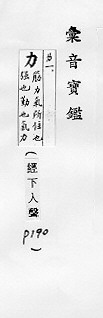 彙音寶鑑
力
筋力氣所任也
強也勤也氣力
(經下入聲 p190)